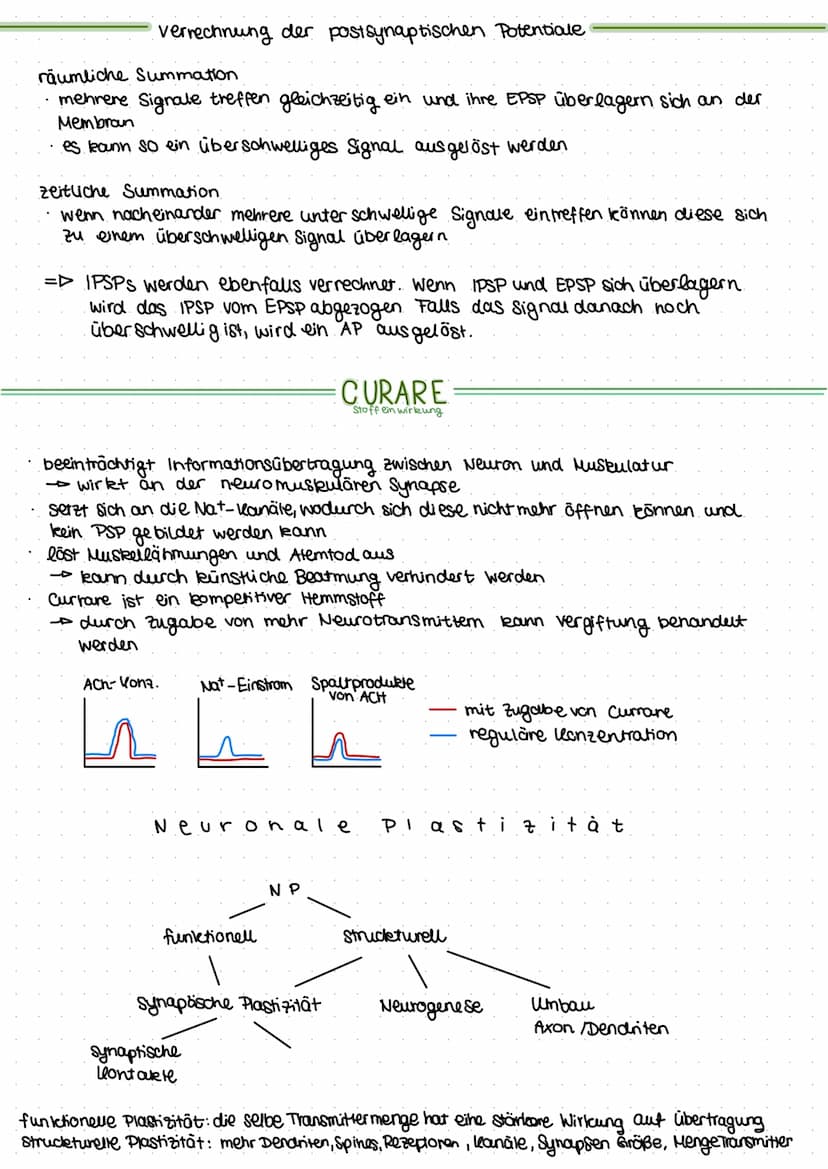 Verrechnung der postsynaptischen Potentiale
räumliche Summation
· mehrere Signale treffen gleichzeitig ein und ihre EPSP überlagern sich an der
Membran
· es kann so ein überschwelliges Signal ausgelöst werden
zeitliche Summation
· wenn nacheinander mehrere unterschwellige Signale eintreffen können diese sich
zu einem überschwelligen Signal überlagern
=> IPSPs werden ebenfalls verrechnet. Wenn IPSP und EPSP sich überlagern
wird das IPSP vom EPSP abgezogen Falls das Signal danach noch
überschwellig ist, wird ein AP ausgelöst.
CURARE
Stoffeinwirkung
· beeinträchtigt Informationsübertragung zwischen Neuron und Muskulatur
→ wirkt an der neuromuskulären Synapse
· setzt sich an die Na+-Kanäle, wodurch sich diese nicht mehr öffnen können und
kein PSP gebildet werden kann
· löst Muskellähmungen und Atemtod aus
→ kann durch künstliche Beatmung verhindert werden
· Currare ist ein kompetitiver Hemmstoff
→ durch Zugabe von mehr Neurotransmittern kann Vergiftung behandelt
werden
ACh-Konz. Na+-Einstrom Spaltprodukte
von ACH
mit Zugabe von Currare
reguläre Konzentration
Neuronale Plastizität
NP
funktionell strukturell
Synaptische Plastizität Neurogenese Umbau
Axon/Dendriten
synaptische
Kontakte
funktionelle Plastizität: die selbe Transmittermenge hat eine stärkere Wirkung auf Übertragung
Strukturelle Plastizität: mehr Dendriten, Spines, Rezeptoren, Kanäle, Synapsen Größe, Menge Transmitter